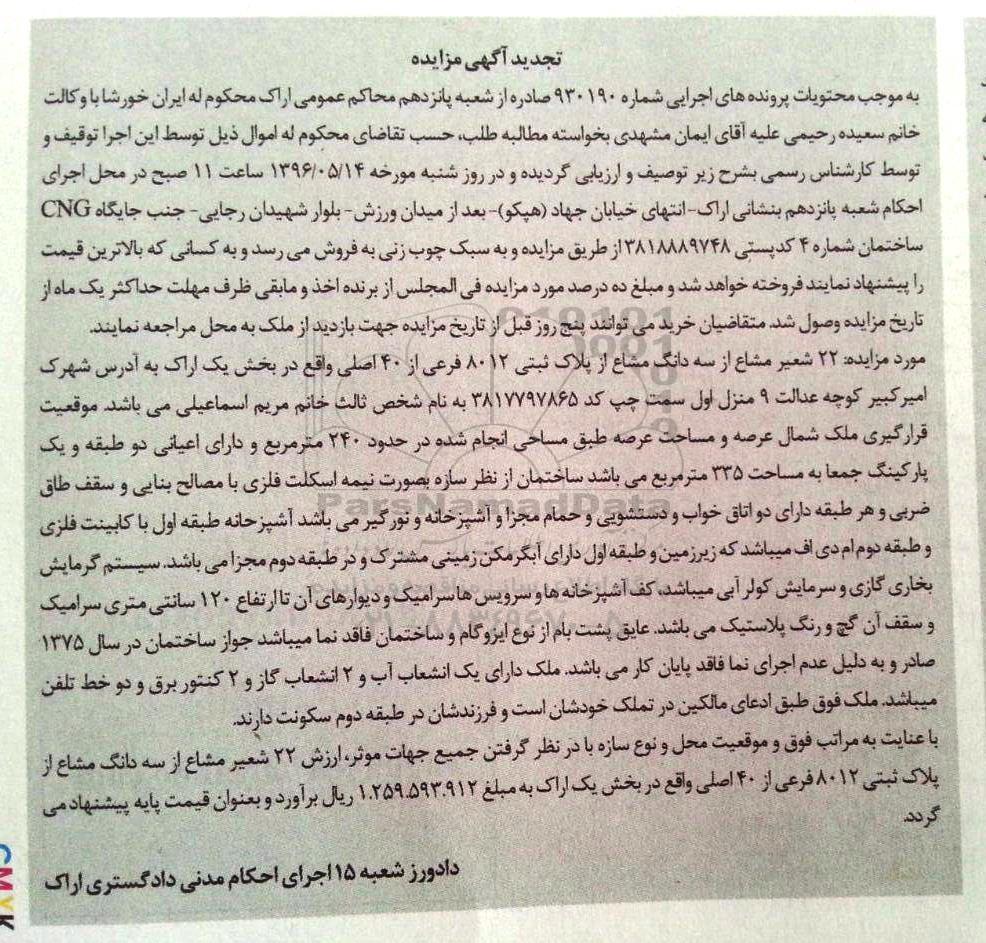 تجدید آگهی مزایده
به موجب محتویات پرونده های اجرایی شماره ۹۳۰۱۹۰ صادره از شعبه پانزدهم محاکم عمومی اراک محکوم له ایران خورشا با وکالت
خانم سعیده رحیمی علیه آقای ایمان مشهدی بخواسته مطالبه طلب، حسب تقاضای محکوم له اموال ذیل توسط این اجرا توقیف و
توسط کارشناس رسمی بشرح زیر توصیف و ارزیابی گردیده و در روز شنبه مورخه ۱۳۹۶/۰۵/۱۴ ساعت ۱۱ صبح در محل اجرای
احکام شعبه پانزدهم بنشانی اراک-انتهای خیابان جهاد (هپکو)- بعد از میدان ورزش- بلوار شهیدان رجایی- جنب جایگاه CNG
ساختمان شماره ۴ کدپستی ۳۸۱۸۸۸۹۷۴۸ از طریق مزایده و به سبک چوب زنی به فروش می رسد و به کسانی که بالاترین قیمت
را پیشنهاد نمایند فروخته خواهد شد و مبلغ ده درصد مورد مزایده فی المجلس از برنده اخذ و مابقی ظرف مهلت حداکثر یک ماه از
تاریخ مزایده وصول شد. متقاضیان خرید می توانند پنج روز قبل از تاریخ مزایده جهت بازدید از ملک به محل مراجعه نمایند.
مورد مزایده: ۲۲ شعیر مشاع از سه دانگ مشاع از پلاک ثبتی ۸۰۱۲ فرعی از ۴۰ اصلی واقع در بخش یک اراک به آدرس شهرک
امیرکبیر کوچه عدالت ۹ منزل اول سمت چپ کد ۳۸۱۷۷۹۷۸۶۵ به نام شخص ثالث خانم مریم اسماعیلی می باشد. موقعیت
قرارگیری ملک شمال عرصه و مساحت عرصه طبق مساحی انجام شده در حدود ۲۴۰ مترمربع و دارای اعیانی دو طبقه و یک
پارکینگ جمعا به مساحت ۳۳۵ مترمربع می باشد ساختمان از نظر سازه بصورت نیمه اسکلت فلزی با مصالح بنایی و سقف طاق
ضربی و هر طبقه دارای دو اتاق خواب و دستشویی و حمام مجزا و آشپزخانه و نورگیر می باشد آشپزخانه طبقه اول با کابینت فلزی
و طبقه دوم ام دی اف میباشد که زیرزمین و طبقه اول دارای آبگرمکن زمینی مشترک و در طبقه دوم مجزا می باشد. سیستم گرمایش
بخاری گازی و سرمایش کولر آبی میباشد، کف آشپزخانه ها و سرویس ها سرامیک و دیوارهای آن تا ارتفاع ۱۲۰ سانتی متری سرامیک
و سقف آن گچ و رنگ پلاستیک می باشد. عایق پشت بام از نوع ایزوگام و ساختمان فاقد نما میباشد جواز ساختمان در سال ۱۳۷۵
صادر و به دلیل عدم اجرای نما فاقد پایان کار می باشد. ملک دارای یک انشعاب آب و ۲ انشعاب گاز و ۲ کنتور برق و دو خط تلفن
میباشد. ملک فوق طبق ادعای مالکین در تملک خودشان است و فرزندشان در طبقه دوم سکونت دارند.
با عنایت به مراتب فوق و موقعیت محل و نوع سازه با در نظر گرفتن جمیع جهات موثر، ارزش ۲۲ شعیر مشاع از سه دانگ مشاع از
پلاک ثبتی ۸۰۱۲ فرعی از ۴۰ اصلی واقع در بخش یک اراک به مبلغ ۱.۲۵۹.۵۹۳.۹۱۲ ریال برآورد و بعنوان قیمت پایه پیشنهاد می
گردد.
دادورز شعبه ۱۵ اجرای احکام مدنی دادگستری اراک
ParsNamadData
CMYK